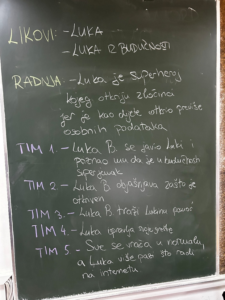 LIKOVI: - LUKA
- LUKA IZ BUDUĆNOSTI
RADNJA: - Luka je superheroj
kojeg otkriju zločinci
jer je kao dijete otkrio previše
osobnih podataka
TIM 1. - Luka B. se javio Luki i
poznao mu da je u budućnosti
superjunak
TIM 2 - Luka B objašnjava zašto je
otkriven
TIM 3. - Luka B traži Lukinu pomoć
TIM 4. - Luka ispravlja pogreške
TIM 5 - Sve se vraća u normalu,
a Luka više pazi što radi
na internetu